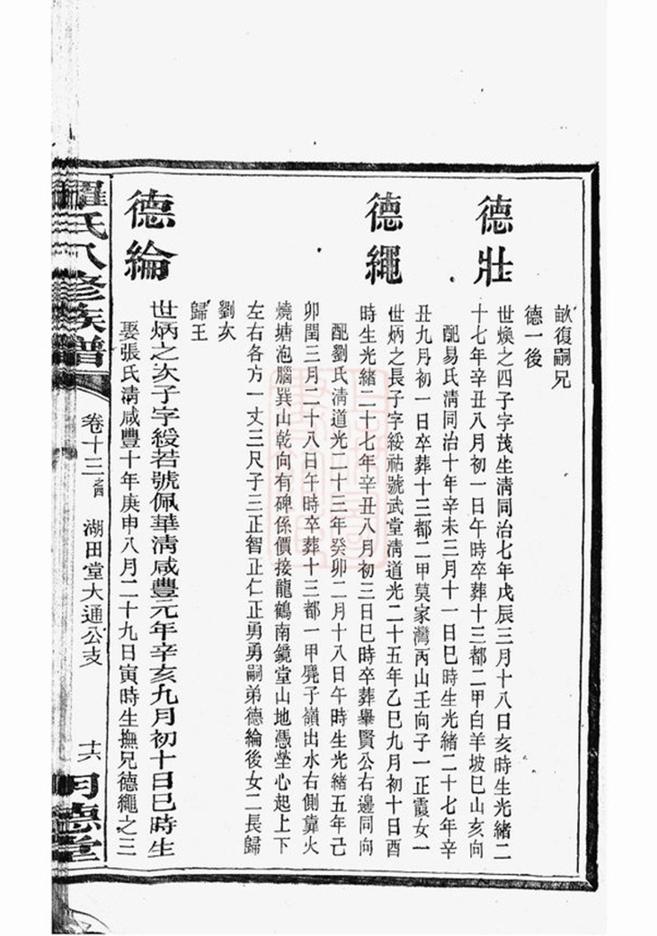 畝復嗣兄
德一後
德壯
世煥之四子字茂生淸同治七年戊辰三月十八日亥時生光緖二
十七年辛丑八月初一日午時卒葬十三都二甲白羊坡巳山亥向
配易氏淸同治十年辛未三月十一日巳時生光緖二十七年辛
丑九月初一日卒葬十三都二甲莫家灣丙山壬向子一正霞女一
德繩
世炳之長子字綏祜號武堂淸道光二十五年乙巳九月初十日酉
時生光緖二十七年辛丑八月初三日巳時卒葬舉賢公右邊同向
配劉氏淸道光二十三年癸卯二月十八日午時生光緖五年己
卯閏三月二十八日午時卒葬十三都一甲凳子嶺出水右側糞火
燒塘泡腦巽山乾向有碑係價接龍鶴南鏡堂山地憑塋心起上下
左右各方一丈三尺子三正智正仁正勇勇嗣弟德綸後女二長歸
劉次
歸王
德綸
世炳之次子字綏若號佩華淸咸豐元年辛亥九月初十日巳時生
娶張氏淸咸豐十年庚申八月二十九日寅時生撫兄德繩之三
羅氏八修族譜
卷十三之四
湖田堂大通公支
十六
明德堂